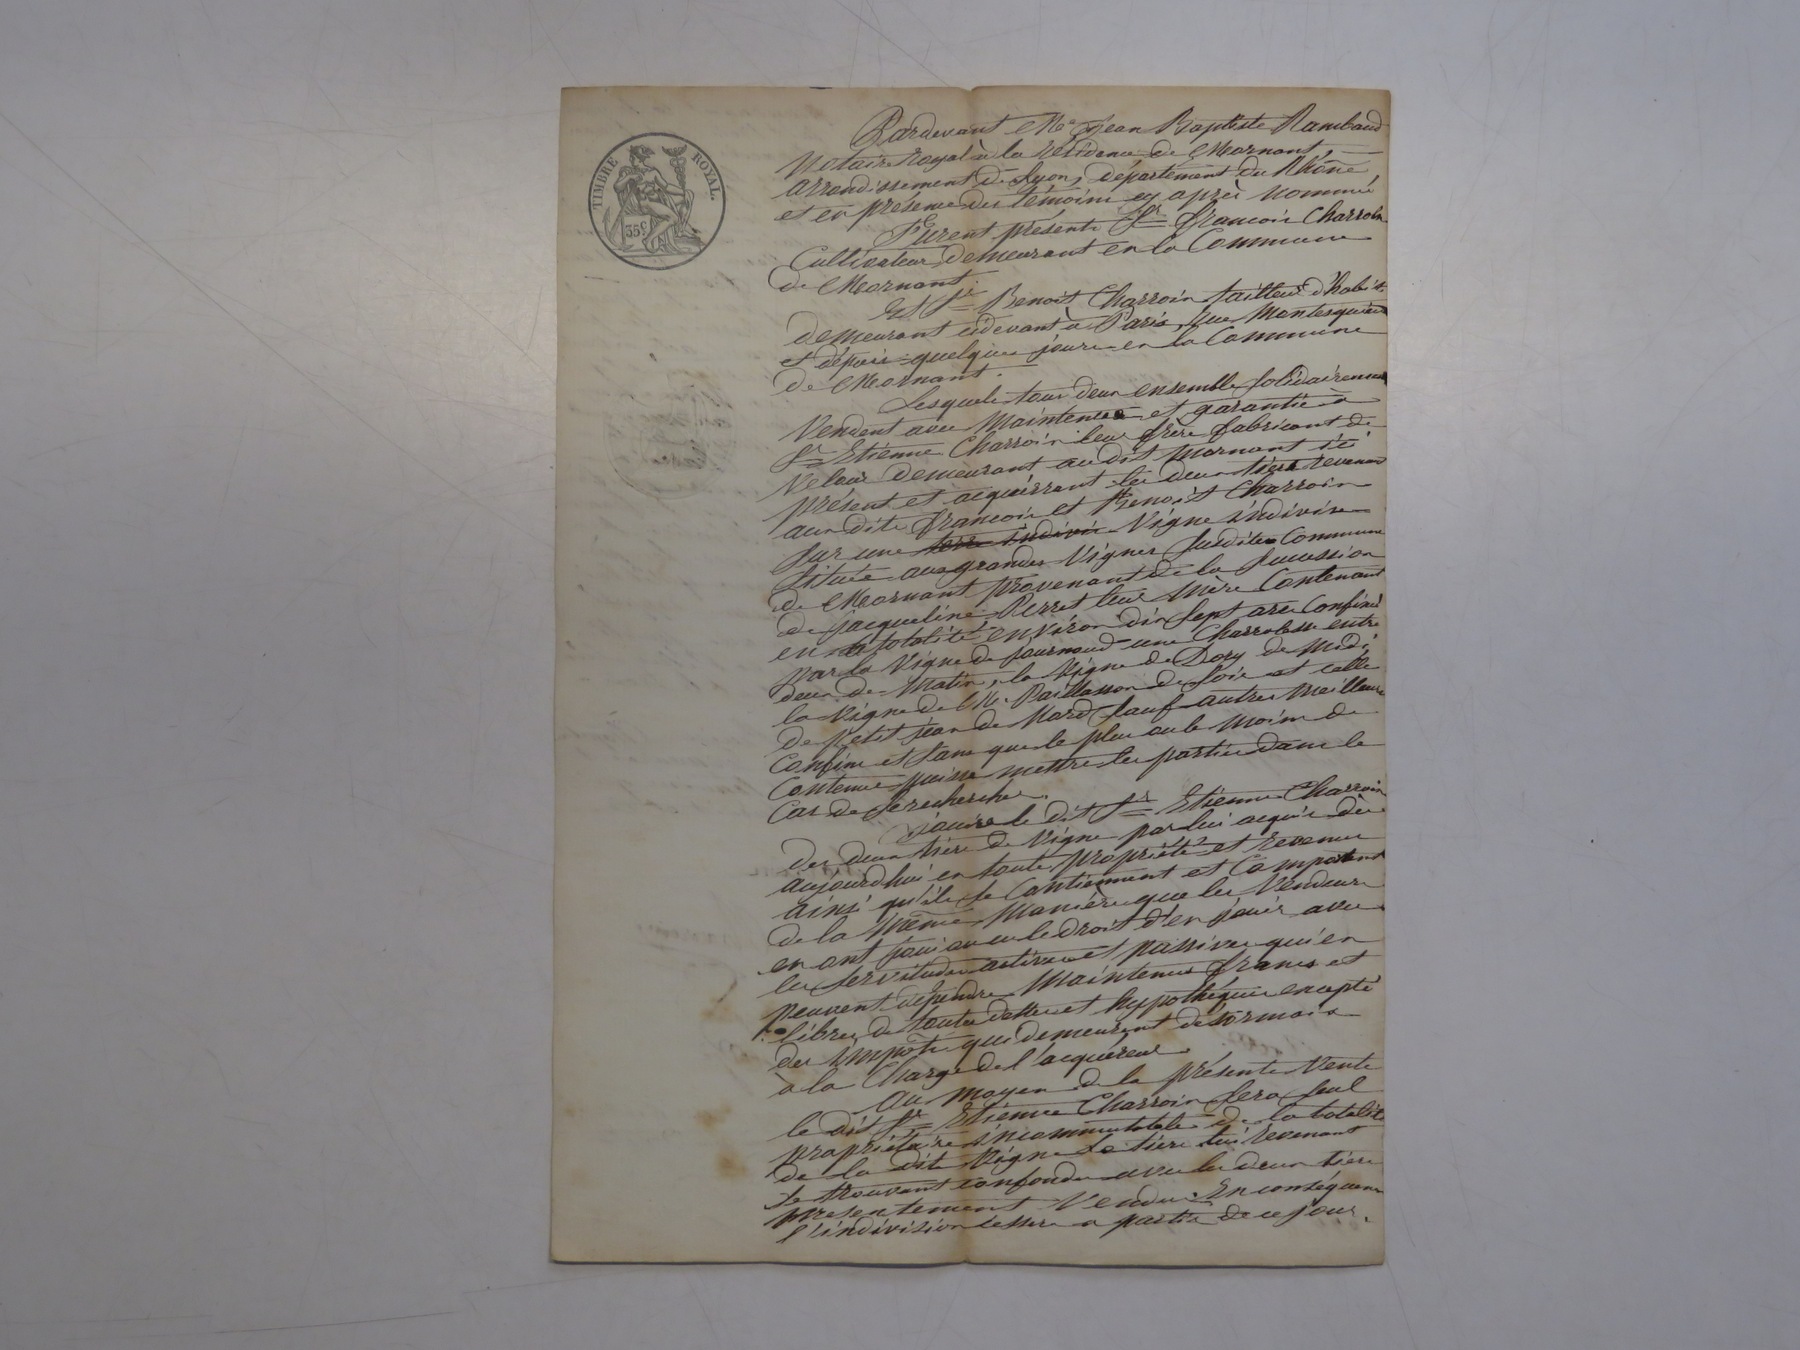 TIMBRE ROYAL.
35c
Pardevant Me Jean Baptiste Rambaud
Notaire Royal à la résidence de Mornant,
arrondissement de Lyon, département du Rhône
et en présence des témoins cy après nommés
Furent présents Sr François Charroin
Cultivateur demeurant en la Commune
de Mornant
Et Sr Benoit Charroin tailleur d'habits
demeurant cidevant à Paris, rue Montesquieu
et depuis quelques jours en la Commune
de Mornant.
Lesquels tous deux ensemble solidairement
Vendent avec Maintenue et garantie à
Sr Etienne Charroin leur frère fabricant de
Velours demeurant audit Mornant ici
présent et acquérrant les deux tiers revenant
aux dits François et Benoit Charroin
sur une terre indivise Vigne indivise
Située aux grandes Vignes susdite Commune
de Mornant provenant de la succession
de Jacqueline Perret leur mère Contenant
en totalité environ dix sept ares Confinée
par la Vigne de Journoud une Charrobesse entre
deux de Matin, la Vigne de Dory de Midi
la Vigne de M. Paillasson de soir et celle
de petit jean de Nord sauf autres meilleurs
Confins et sans que le plus ou le moins de
Contenue puisse mettre les parties dans le
Cas de se rechercher.
Jouira le dit Sr Etienne Charroin
des deux tiers de Vigne par lui acquis dès
aujourd'hui en toute propriété et revenus
ainsi qu'ils se Contiennent et Comportent
de la même Manière que les Vendeurs
en ont joui ou eu le droit d'en jouir avec
les servitudes actives et passives qui en
peuvent dépendre Maintenus francs et
libres de toutes dettes et hypothéques excepté
des impots qui demeurent désormais
à la Charge de l'acquéreur
Au moyen de la présente Vente
le dit Sr Etienne Charroin sera seul
propriétaire incommutable de la totalité
de la dite Vigne le tiers lui revenant
se trouvant confondu avec les deux tiers
presentement Vendus. En conséquence
l'indivision cessera a partir de ce jour.